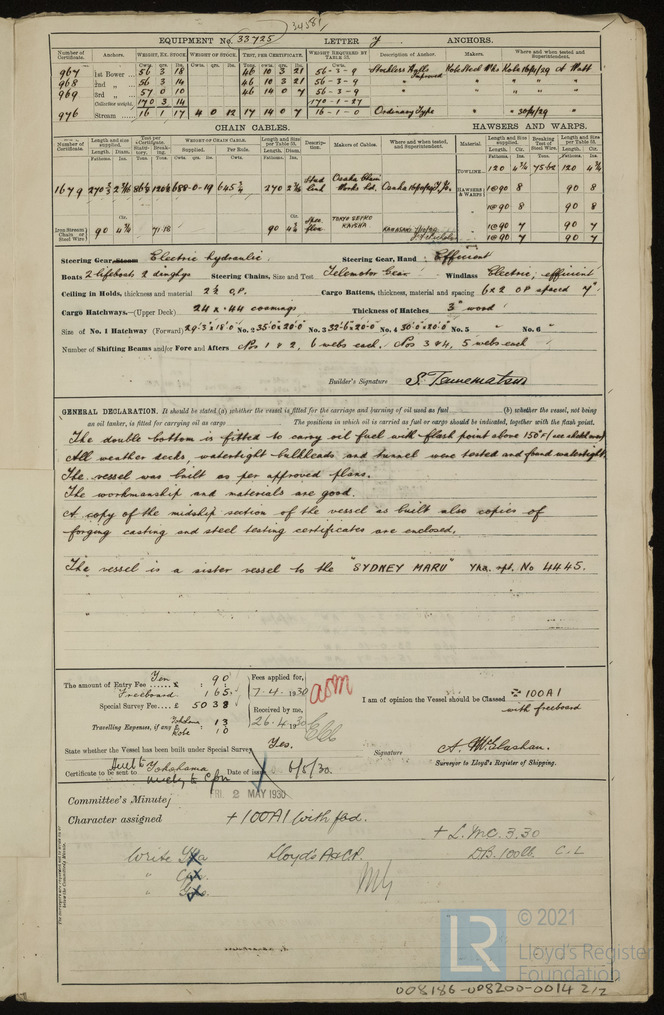 34581
EQUIPMENT No. 33725 LETTER J ANCHORS.
Number of Certificate. Anchors. WEIGHT, EX. STOCK WEIGHT OF STOCK. TEST, PER CERTIFICATE. WEIGHT REQUIRED BY TABLE 53. Description of Anchor. Makers. Where and when tested and Superintendent.
Cwts. qrs. lbs. Cwts. qrs. lbs. Tons. cwts. qrs. lbs. Cwts. qrs. lbs.
967 1st Bower 56 3 18 46 10 3 21 56-3-9 Stockless Halls Improved Kobe Steel Wks Kobe 16/4/29 A Watt
968 2nd „ 56 3 14 46 10 3 21 56-3-9 " " "
969 3rd „ 57 0 10 46 14 0 7 56-3-9 " " "
Collective weight. 170 3 14 170-1-27
976 Stream 16 1 17 4 0 12 17 14 0 7 16-1-0 Ordinary Type " " 30/4/29 "
CHAIN CABLES. HAWSERS AND WARPS.
Number of Certificate. Length and size supplied. Test per Certificate. WEIGHT OF CHAIN CABLE. Length and Size per Table 53. Description. Makers of Cables. Where and when tested, and Superintendent. Material Length and size supplied. Breaking Test of Steel Wire. Length and Size per Table 53.
Length. Diam. Supplied. Per Rule. Length. Diam. Length. Cir. Length. Cir.
Fathoms. Ins. Tons. Tons. Cwts. qrs. lbs. Cwts. Fathoms. Ins. Fathoms. Ins. Tons. Fathoms. Ins.
TOWLINE 120 4¾ 75·62 120 4¾
1679 270 688-0-19 270 Stud link Osaka Chain Works Ltd. Osaka HAWSERS & WARPS 1@90 8 90 8
1@90 8 90 8
Iron Stream Chain or Steel Wire 90 4¾ 71·18 90 4¾ TOKYO SEIKO KAISHA KAWASAKI 1@90 7 90 7
1@90 7 90 7
Steering Gear, Steam Electric hydraulic Steering Gear, Hand Efficient
Boats 2 lifeboats 2 dinghys Steering Chains, Size and Test Telemotor Gear Windlass Electric, efficient
Ceiling in Holds, thickness and material 2½ O.P. Cargo Battens, thickness, material and spacing 6x2 OP spaced 9"
Cargo Hatchways.—(Upper Deck) 24 x .44 coamings Thickness of Hatches 3" wood
Size of No. 1 Hatchway (Forward) 24·3 x 18·0 No. 2 35·0 x 20·0 No. 3 32·6 x 20·0 No. 4 30·0 x 20·0 No. 5 " No. 6 "
Number of Shifting Beams and/or Fore and Afters Nos 1 & 2, 6 webs each. Nos 3 & 4, 5 webs each
Builder's Signature S. Tannematsu
GENERAL DECLARATION. It should be stated (a) whether the vessel is fitted for the carriage and burning of oil used as fuel (b) whether the vessel, not being
an oil tanker, is fitted for carrying oil as cargo The positions in which oil is carried as fuel or cargo should be indicated, together with the flash point.
The double bottom is fitted to carry oil fuel with flash point above 150°F (see sketch
All weather decks, watertight bulkheads and tunnel were tested and found watertight.
The vessel was built as per approved plans.
The workmanship and materials are good.
A copy of the midship section of the vessel as built also copies of
forging casting and steel testing certificates are enclosed.
The vessel is a sister vessel to the "SYDNEY MARU" Yka. rpt. No 4445.
The amount of Entry Fee Yen 90 Fees applied for,
Freeboard 165 7-4-1930
Special Survey Fee.... £ 5038 Received by me,
Travelling Expenses, if any Yokohama 13 26.4.1930
Kobe 10
I am of opinion the Vessel should be Classed +100A1
with freeboard
State whether the Vessel has been built under Special Survey Yes. Signature A. McGlashan.
Surveyor to Lloyd's Register of Shipping.
Certificate to be sent to Yokohama Date of issue 6/5/30.
Committee's Minute FRI. 2 MAY 1930
Character assigned +100A1 with fbd.
+ L.M.C. 3.30
D.B. 100lb. C.L
Write Yka Lloyd's A&CP.
"
"
© 2021
LR Lloyd's Register
Foundation
008186-008200-0014 2/2